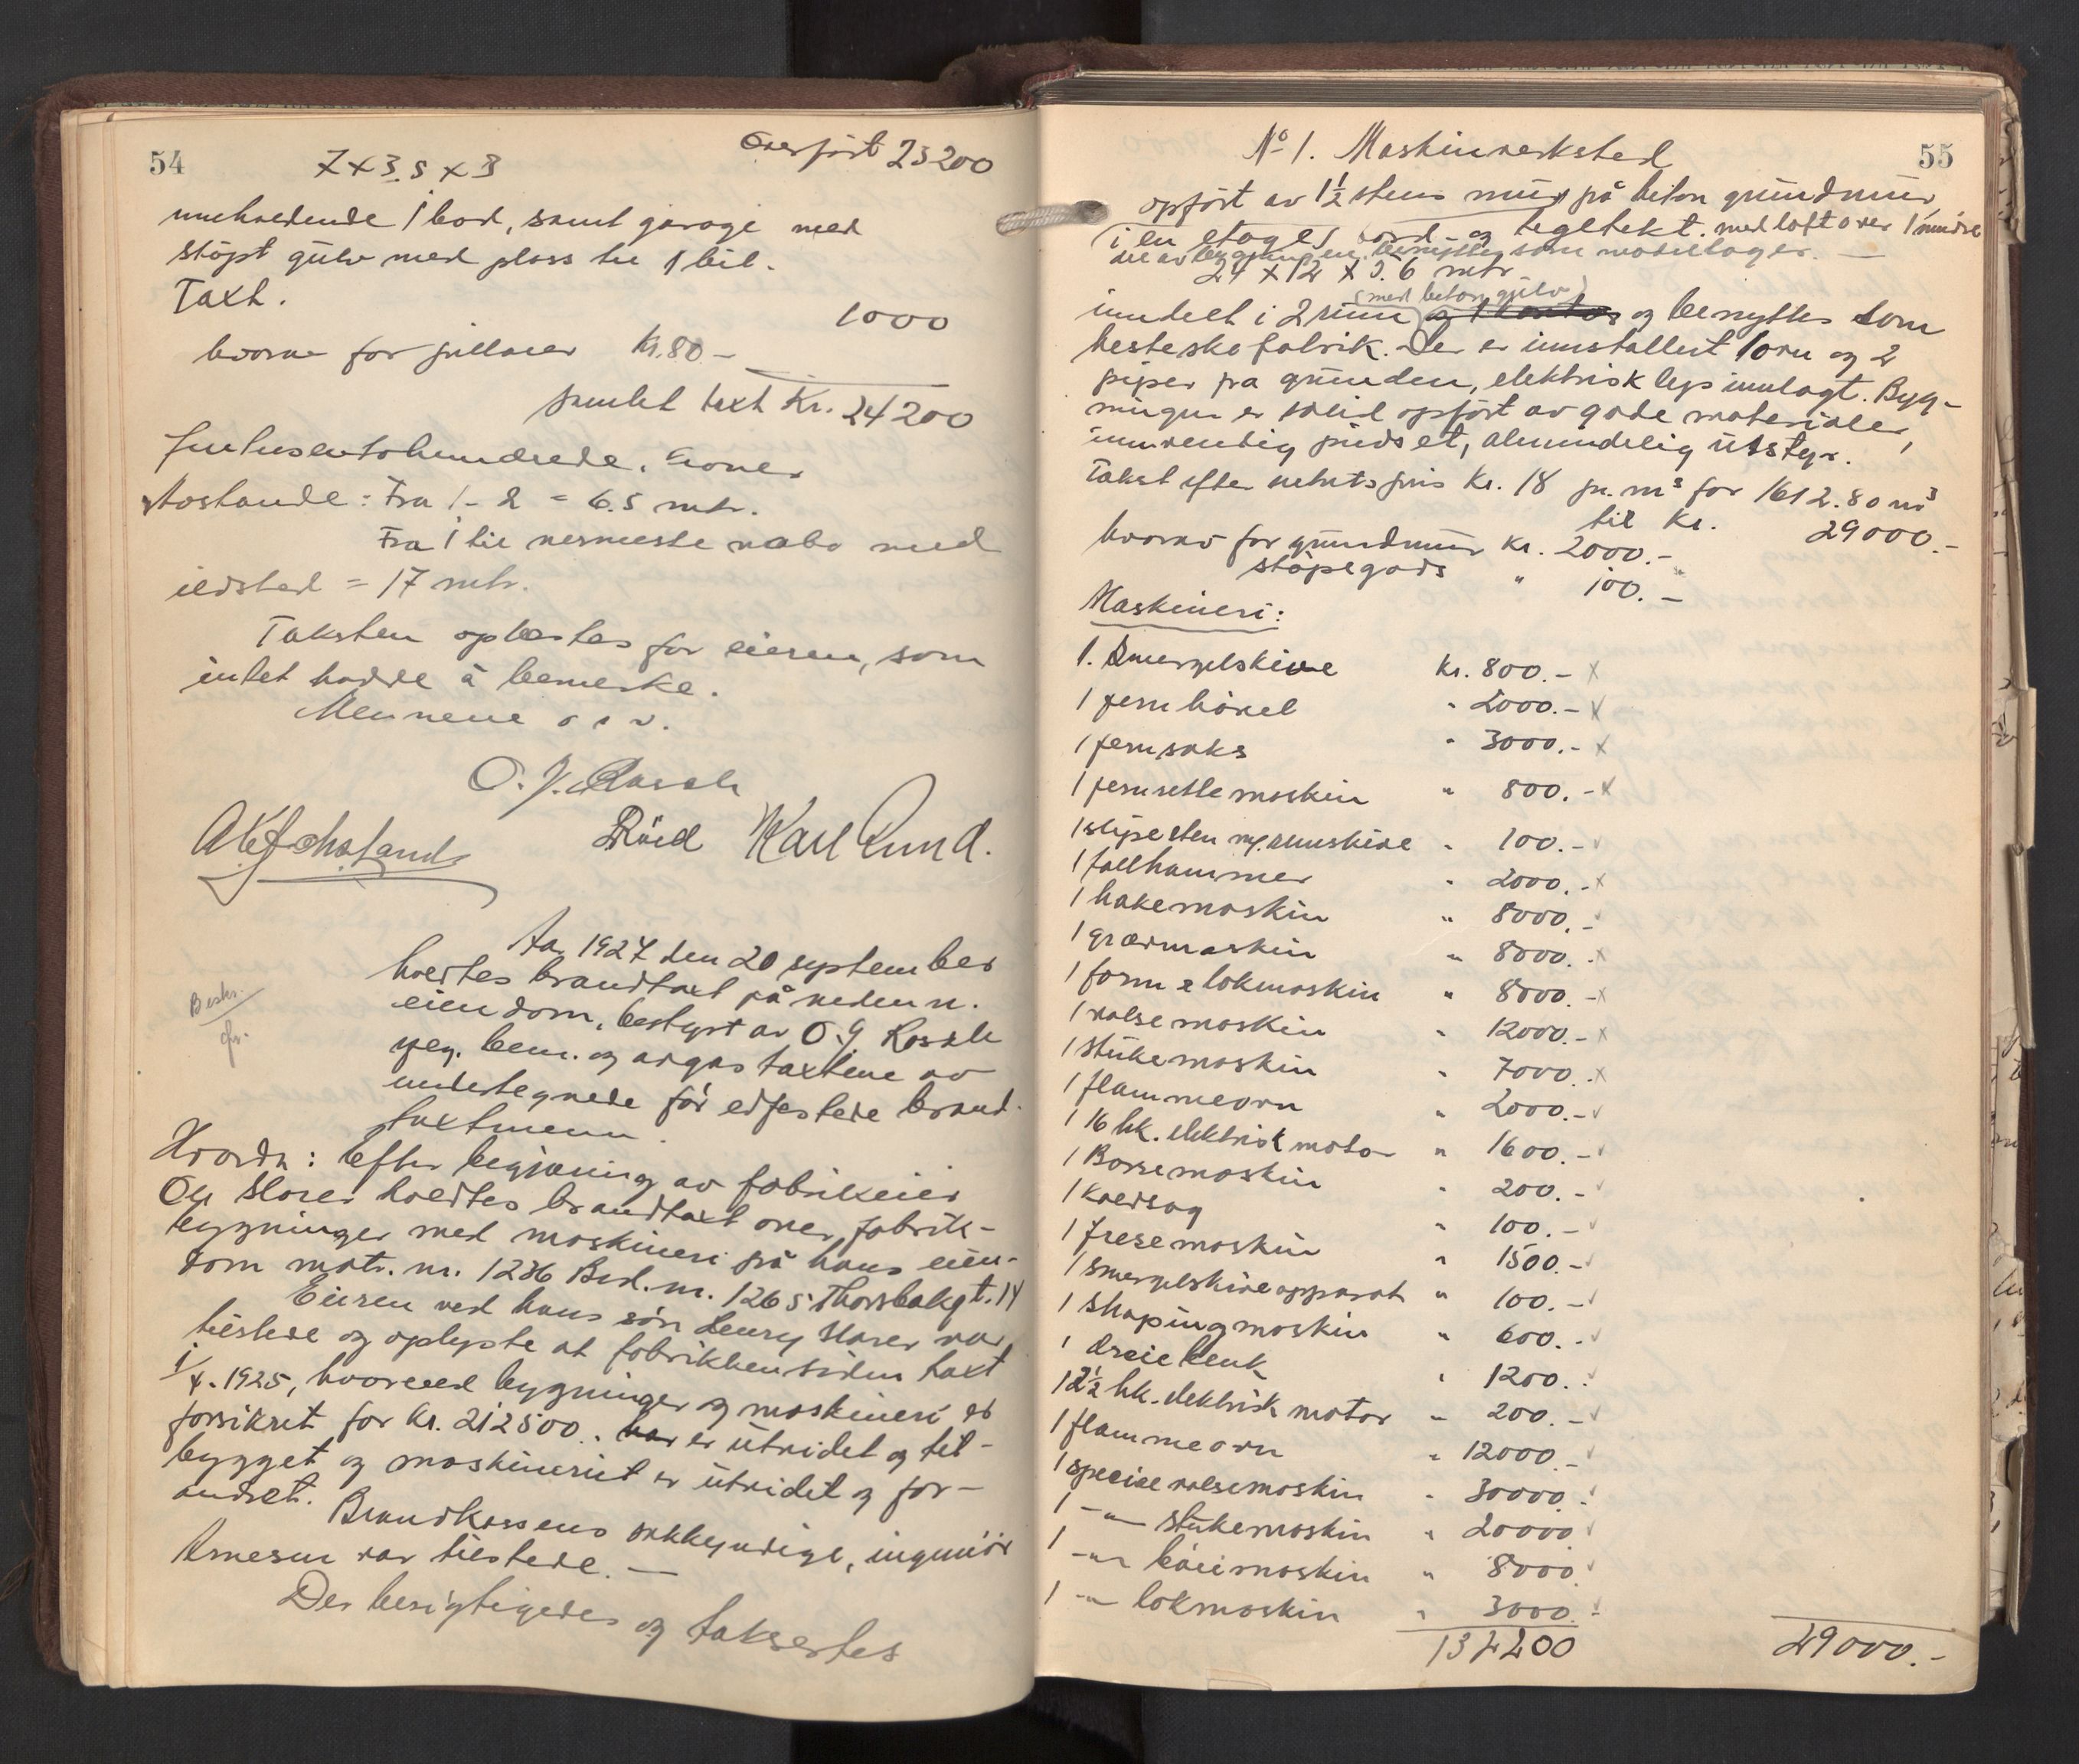 54
7 x 3.5 x 3
Overført 23200
inneholdende 1 bod, samt garage med
støpt gulv med plass til 1 bil.
Taxt.
1000
hvorav for pillarer Kr. 80 –
samlet taxt Kr. 24200
firetusentohundrede, kroner
Avstande: Fra 1 - 2 = 6.5 mtr.
Fra 1 til nermeste nabo med
ildsted = 17 mtr.
Taksten oplæstes for eieren, som
intet hadde å bemerke.
Mennene o s v.
O. J. Rasch
Karl Lund.
Aar 1927 den 20 september
holdtes brandtaxt på nedenn.
eiendom, bestyrt av O. J. Rasch
Beskr.
geg. bem. og avgas taxtene av
undertegnede før edfestede brand-
taxtmenn.
Hvorda: Efter begjæring av fabrikeier
holdtes brandtaxt over fabrik-
bygninger med maskineri på hans eien-
dom matr. nr. 1236 Brd. nr. 1265 Thorsbakgt. 14
Eieren ved hans søn Henry var
tilstede og oplyste at fabrikken siden taxt
i 1/4. 1925, hvorved bygninger og maskineri er
forsikret for Kr. 212500. har er utvidet og til-
bygget og maskineriet er utvidet og for-
andret.
Brandkassens sakkyndige, ingeniør
Arnesen var tilstede. —
Der besigtigedes og taksertes
55
No 1. Maskinverksted
opført av 1½ stens mur på beton grundmur
i en etage, bord- og tegltekt. med loft over 1 mindre
del av bygningen benyttes som modellager. —
24 x 12 x 5.6 mtr.
(med beton gulv)
inndelt i 2 rum og 1 kontor og benyttes som
hesteskofabrik. Der er innstallert 1 ovn og 2
piper fra grunden, elektrisk lys innlagt. Byg-
ningen er solid opført av gode materialer,
innvendig pudset, almindelig utstyr.
Takst efter enhetspris Kr. 18 pr. m³ for 1612.80 m³
til Kr. 29000.-
hvorav for grundmur Kr. 2000.-
støpegods " 100.-
Maskineri:
1. Smergelskive Kr. 800.- x
1 jernhøvel " 2000.- x
1 jernsaks " 3000.- x
1 jernrettemaskin " 800.- x
1 slipesten m/ remskive " 100.- v
1 fallhammer " 2000.- x
1 hakemaskin " 8000.- v
1 gravmaskin " 8000.- x
1 form & lokmaskin " 8000.- x
1 valsemaskin " 12000.- x
1 stukemaskin " 7000.- x
1 flammeovn " 2000.- v
1 16 hk. elektrisk motor " 1600.- v
1 Borremaskin " 200.- v
1 koldsag " 100.- v
1 fresemaskin " 1500.- v
1 smergelskiveapparat " 100.- v
1 shapingmaskin " 600.- v
1 dreiebenk " 1200.- v
1 2½ hk. elektrisk motor " 200.- v
1 flammeovn " 12000.- v
1 special valsemaskin " 30000.- v
1 –"– stukemaskin " 20000 v
1 –"– bøiemaskin " 8000 v
1 –"– lokmaskin " 3000.- v
132200
29000.-